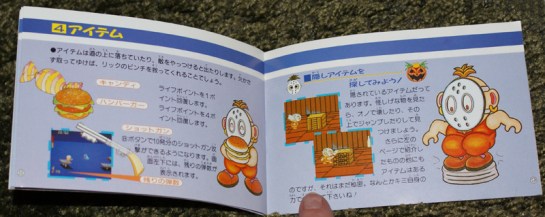 4 アイテム
●アイテムは道の上に落ちていたり、敵をやっつけると出たりします。
ず取ってゆけば、リックのピンチを救ってくれることでしょう。
キャンディ
ライフポイントを1ポ
イント回復します。
ハンバーガー
ライフポイントを4ポ
イント回復します。
ショットガン
Ⅱボタンで10発分のショットガン攻
撃ができるようになります。画
面左下には、残りの弾数が
表示されます。
残りの弾数
■隠しアイテムを
探してみよう!
隠されているアイテムだって
あります。怪しげな物を見た
ら、オノで壊したり、その
上でジャンプしたりして見
つけましょう。
さらに左の
ページで紹介し
たものの他にも
アイテムはある
のですが、それはまだ秘密。なんとかキミ自身の
力で
て下さいね!